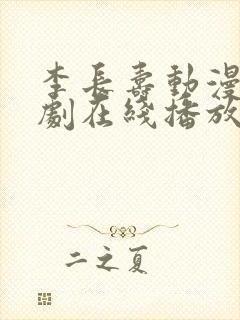 李長壽動漫
劇在綫播放
二之夏